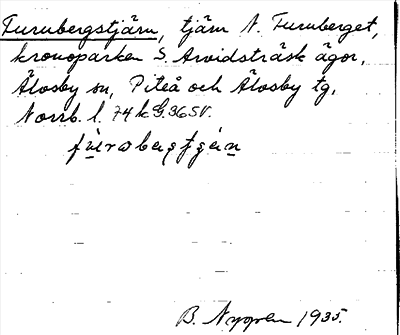 Furubergstjärn, tjärn N. Furuberget,
kronoparken S. Arvidsträsk ägor,
Älvsby sn, Piteå och Älvsby tg,
Norrb. l. 74 k G. 36 SV.
B. Nygren 1935.